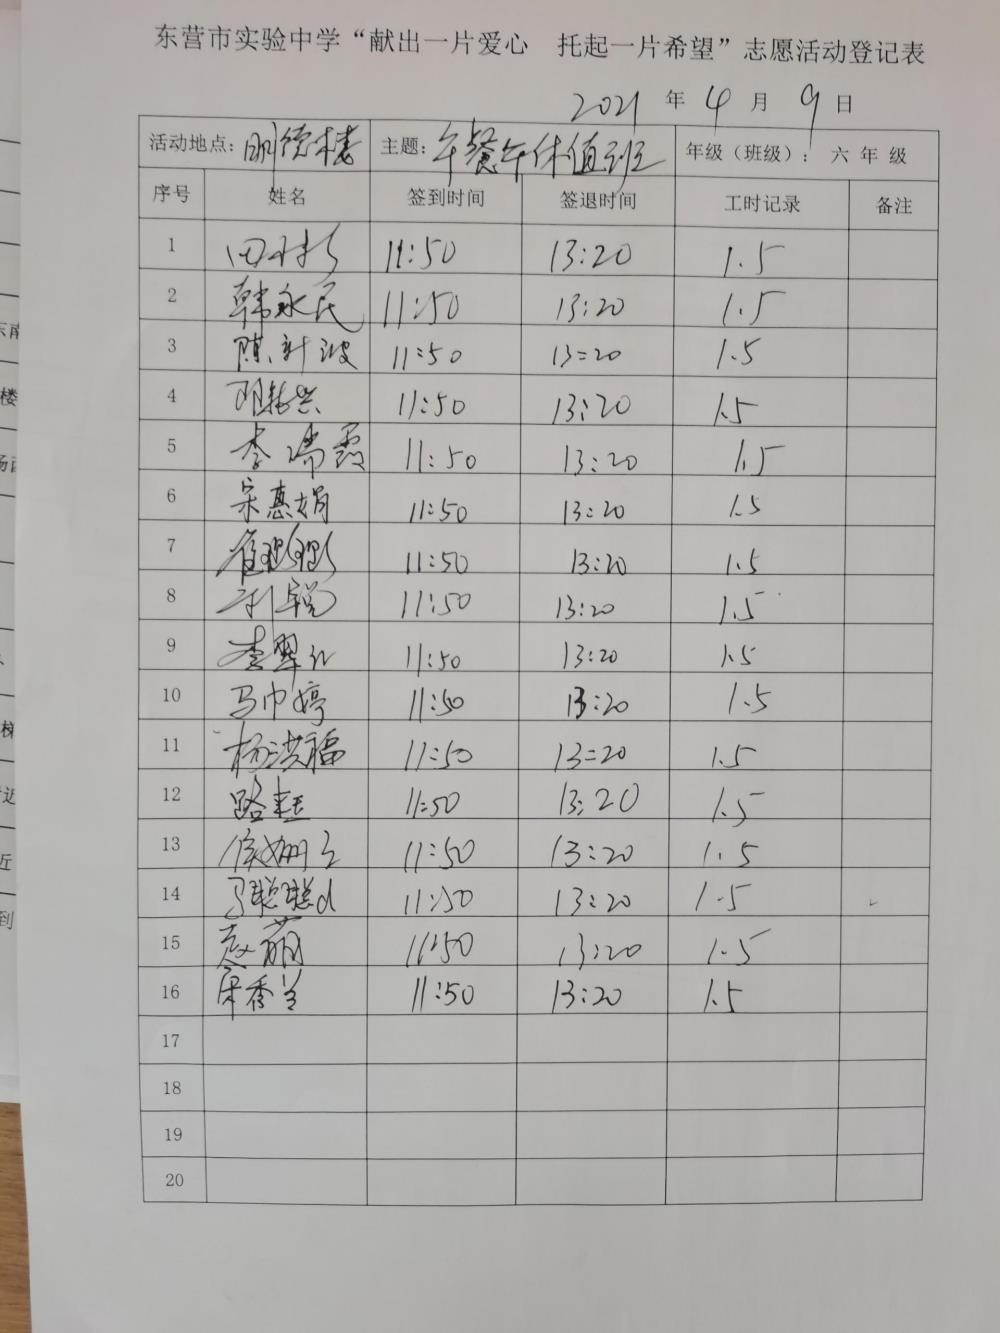 东营市实验中学“献出一片爱心 托起一片希望”志愿活动登记表
2021 年 4 月 9 日
活动地点: 明德楼 主题: 午餐午休值班 年级（班级）: 六 年 级
序号 姓名 签到时间 签退时间 工时记录 备注
1 田 11:50 13:20 1.5
2 韩永民 11:50 13:20 1.5
3 陈 波 11:50 13:20 1.5
4 11:50 13:20 1.5
5 李瑞霞 11:50 13:20 1.5
6 宋惠娟 11:50 13:20 1.5
7 崔 11:50 13:20 1.5
8 11:50 13:20 1.5
9 李翠红 11:50 13:20 1.5
10 马巾婷 11:50 13:20 1.5
11 杨洪福 11:50 13:20 1.5
12 路 11:50 13:20 1.5
13 侯姗 11:50 13:20 1.5
14 马聪聪 11:50 13:20 1.5
15 赵萌 11:50 13:20 1.5
16 宋香兰 11:50 13:20 1.5
17
18
19
20
楼
近
到